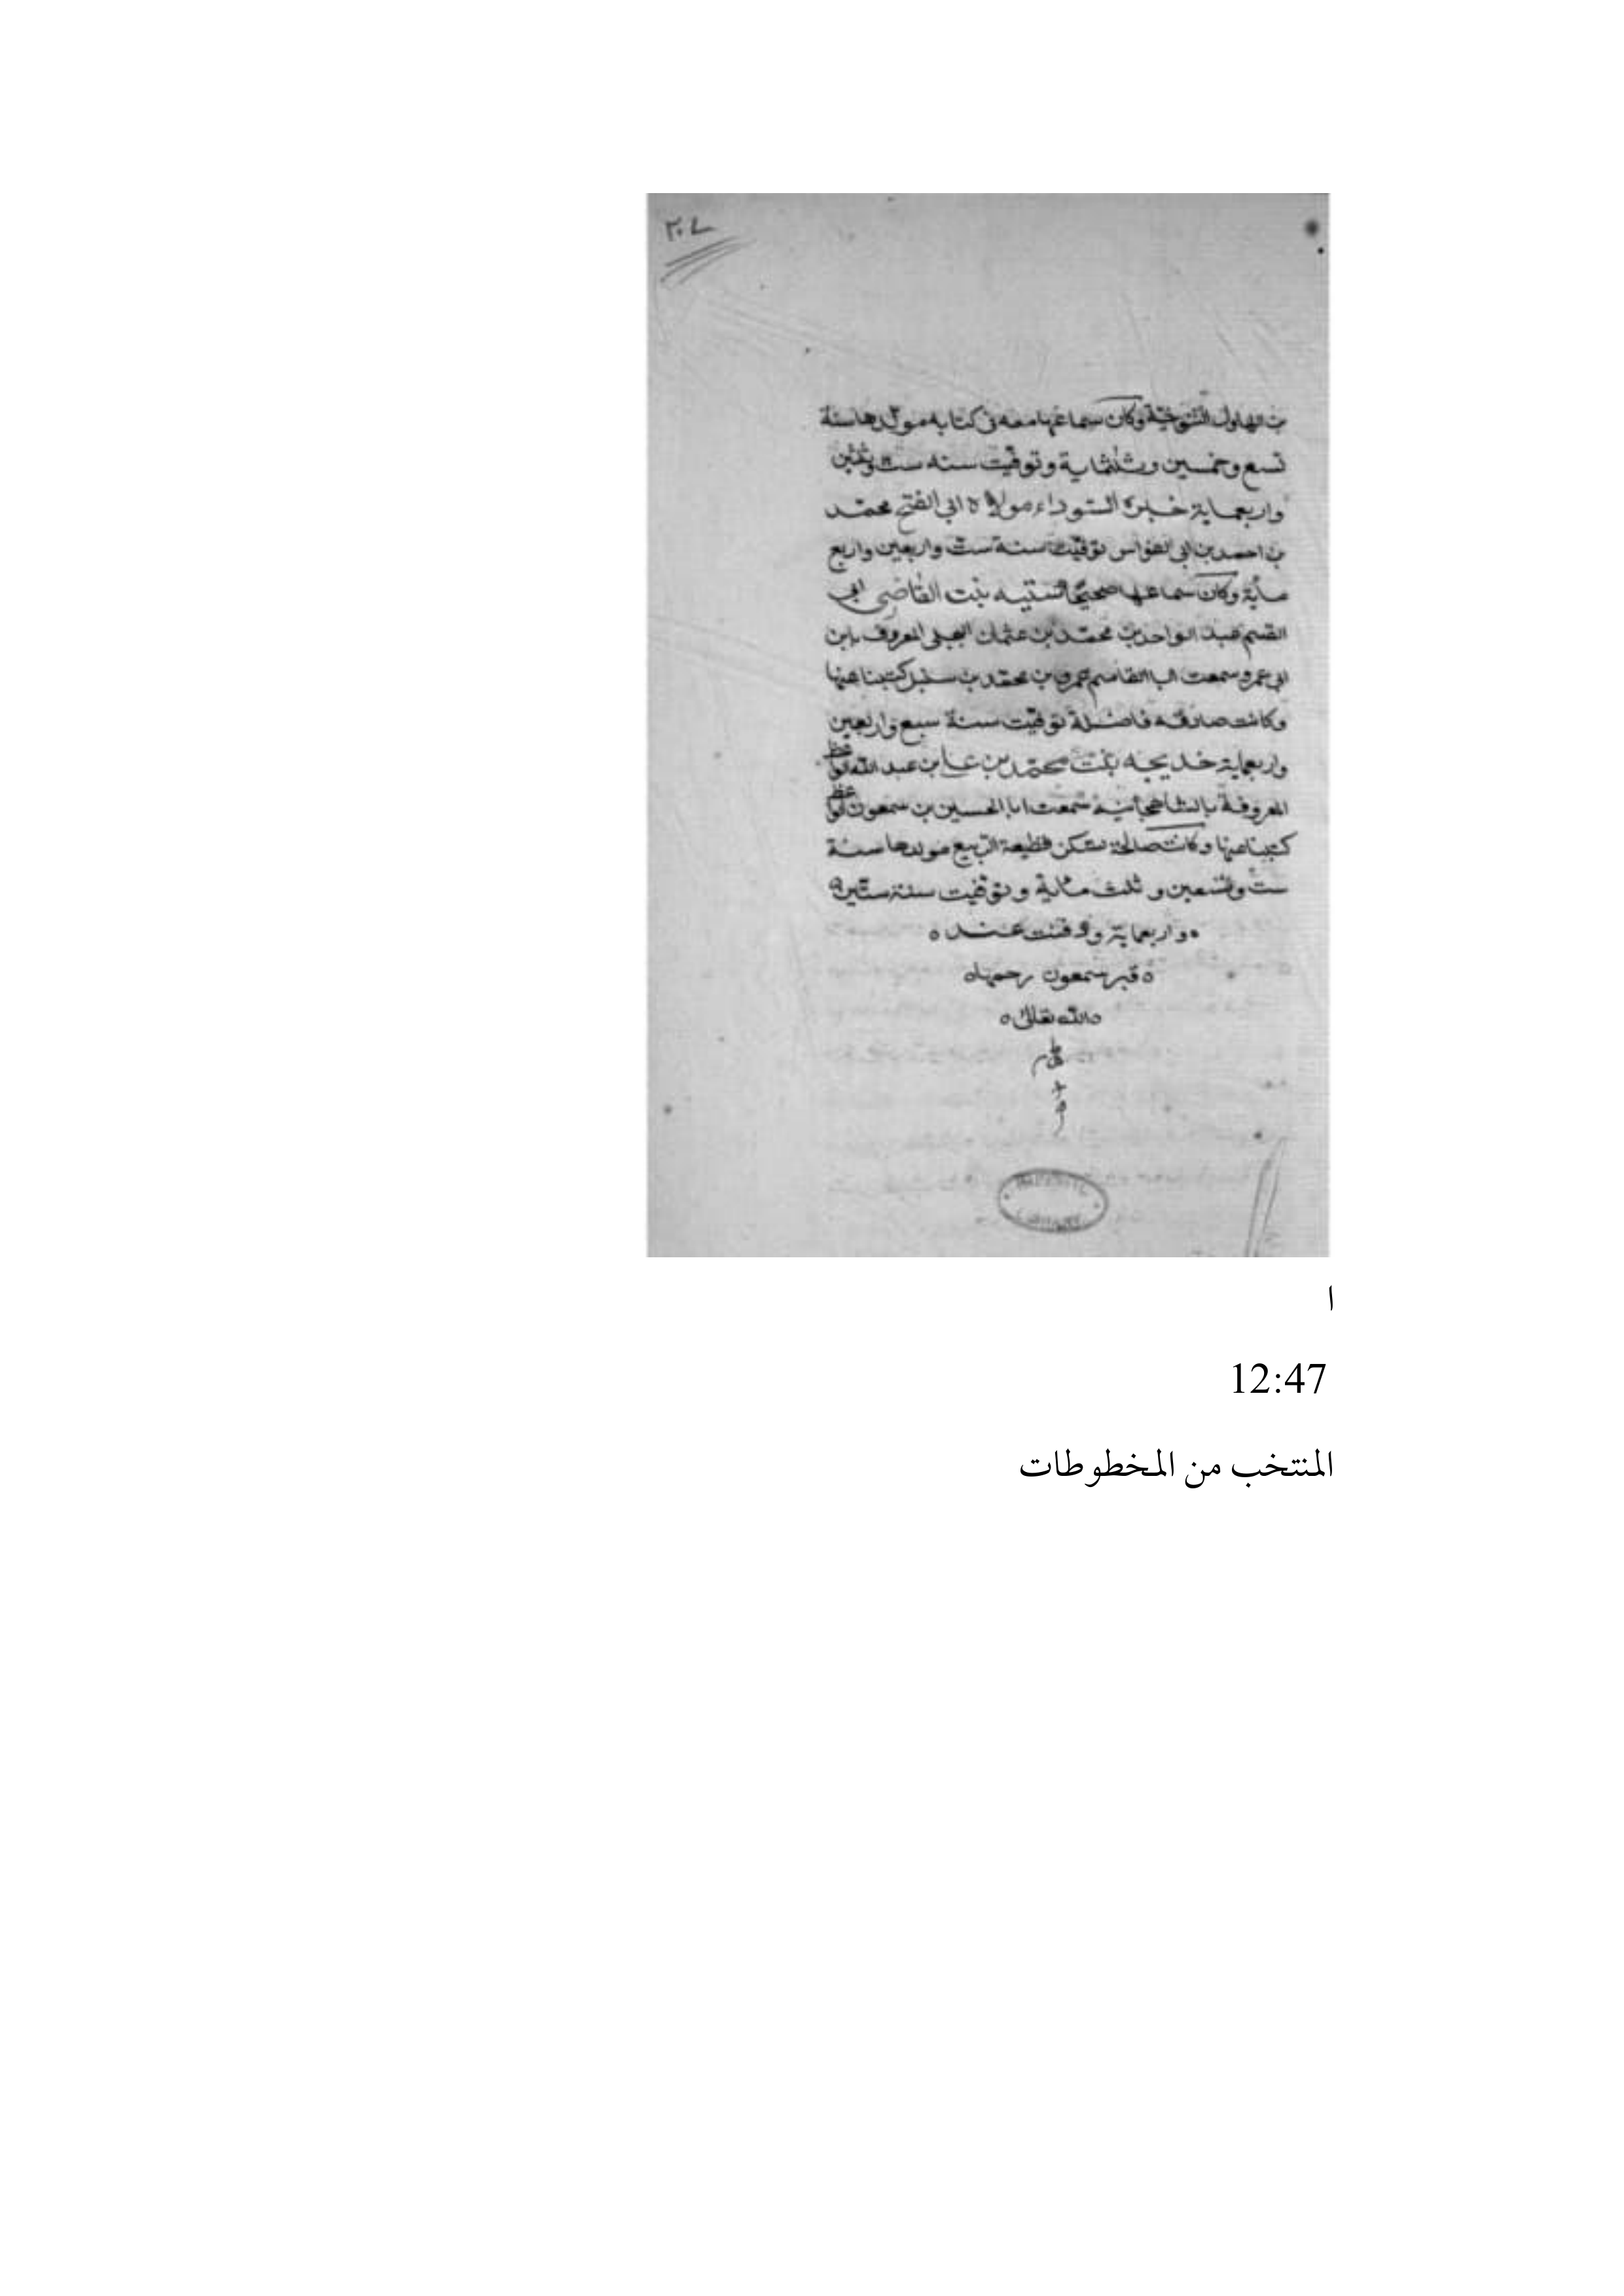 ٣٠٧
بن البهلول التنوخية وكان سماعها معه في كتابه مولدها سنة
تسع وخمسين وثلثماية وتوفيت سنه ست وثلثين
واربعماية السوداء مولاة ابي الفتح محمد
بن احمد بن ابي الفوارس توفيت سنة ست واربعين واربع
ماية وكان سماعها صحيحا ستيه بنت القاضي ابي
القسم عبد الواحد بن محمد بن عثمان البجلي المعروف بابن
ابي عمرو سمعت ابا القاسم عمر بن محمد بن سنبل كتبنا عنها
وكانت صادقه فاضلة توفيت سنة سبع واربعين
واربعماية خديجه بنت محمد بن علي بن عبد الله الواعظ
المعروفة بالشاهجانية سمعت ابا الحسين بن سمعون الواعظ
كتبنا عنها وكانت صالحة تسكن قطيعة الربيع مولدها سنة
ست وتسعين وثلث ماية وتوفيت سنة ستين
واربعماية ودفنت عند
قبر سمعون رحمها
الله تعالى
IMPERIAL
LIBRARY
ا
12:47
المنتخب من المخطوطات